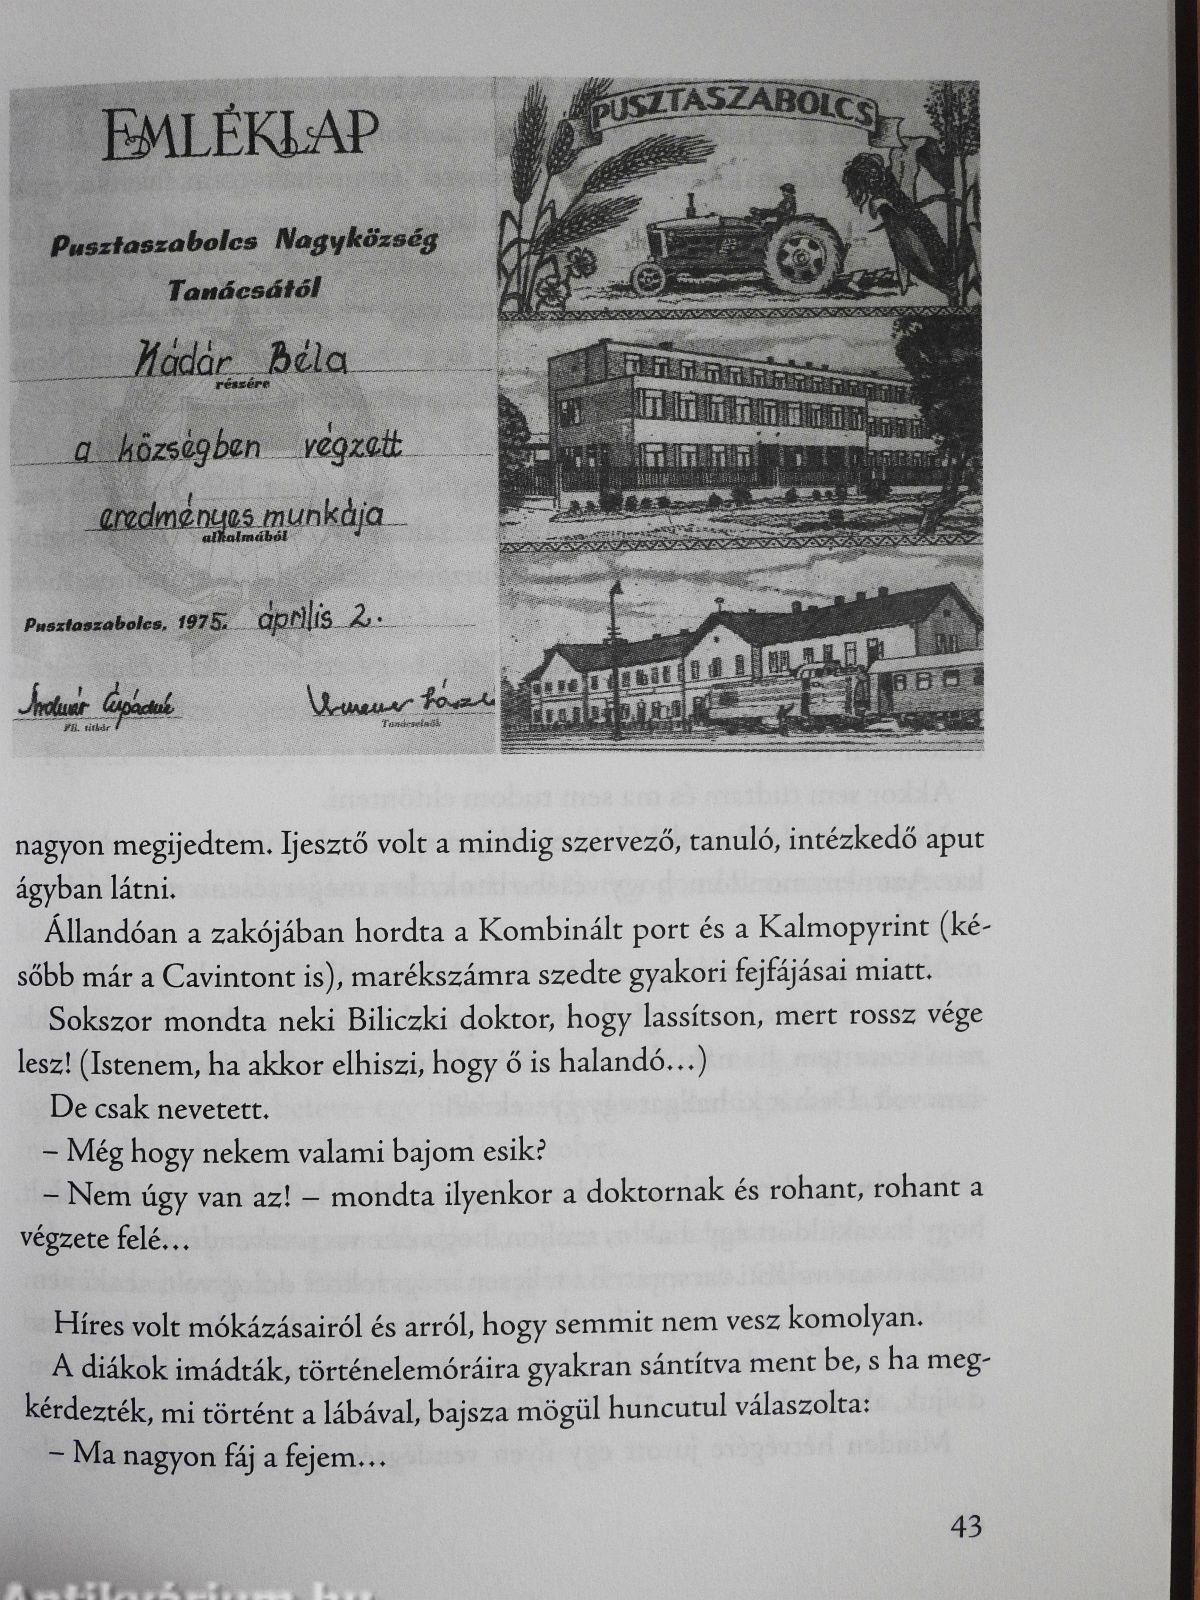 EMLÉKLAP
Pusztaszabolcs Nagyközség
Tanácsától
Kádár Béla
részére
a községben végzett
eredményes munkája
alkalmából
Pusztaszabolcs, 1975. április 2.
Pb. titkár
Tanácselnök
PUSZTASZABOLCS
nagyon megijedtem. Ijesztő volt a mindig szervező, tanuló, intézkedő aput
ágyban látni.
Állandóan a zakójában hordta a Kombinált port és a Kalmopyrint (ké-
sőbb már a Cavintont is), marékszámra szedte gyakori fejfájásai miatt.
Sokszor mondta neki Biliczki doktor, hogy lassítson, mert rossz vége
lesz! (Istenem, ha akkor elhiszi, hogy ő is halandó…)
De csak nevetett.
– Még hogy nekem valami bajom esik?
– Nem úgy van az! – mondta ilyenkor a doktornak és rohant, rohant a
végzete felé…
Híres volt mókázásairól és arról, hogy semmit nem vesz komolyan.
A diákok imádták, történelemóráira gyakran sántítva ment be, s ha meg-
kérdezték, mi történt a lábával, bajsza mögül huncutul válaszolta:
– Ma nagyon fáj a fejem…
43
Antikvárium.hu